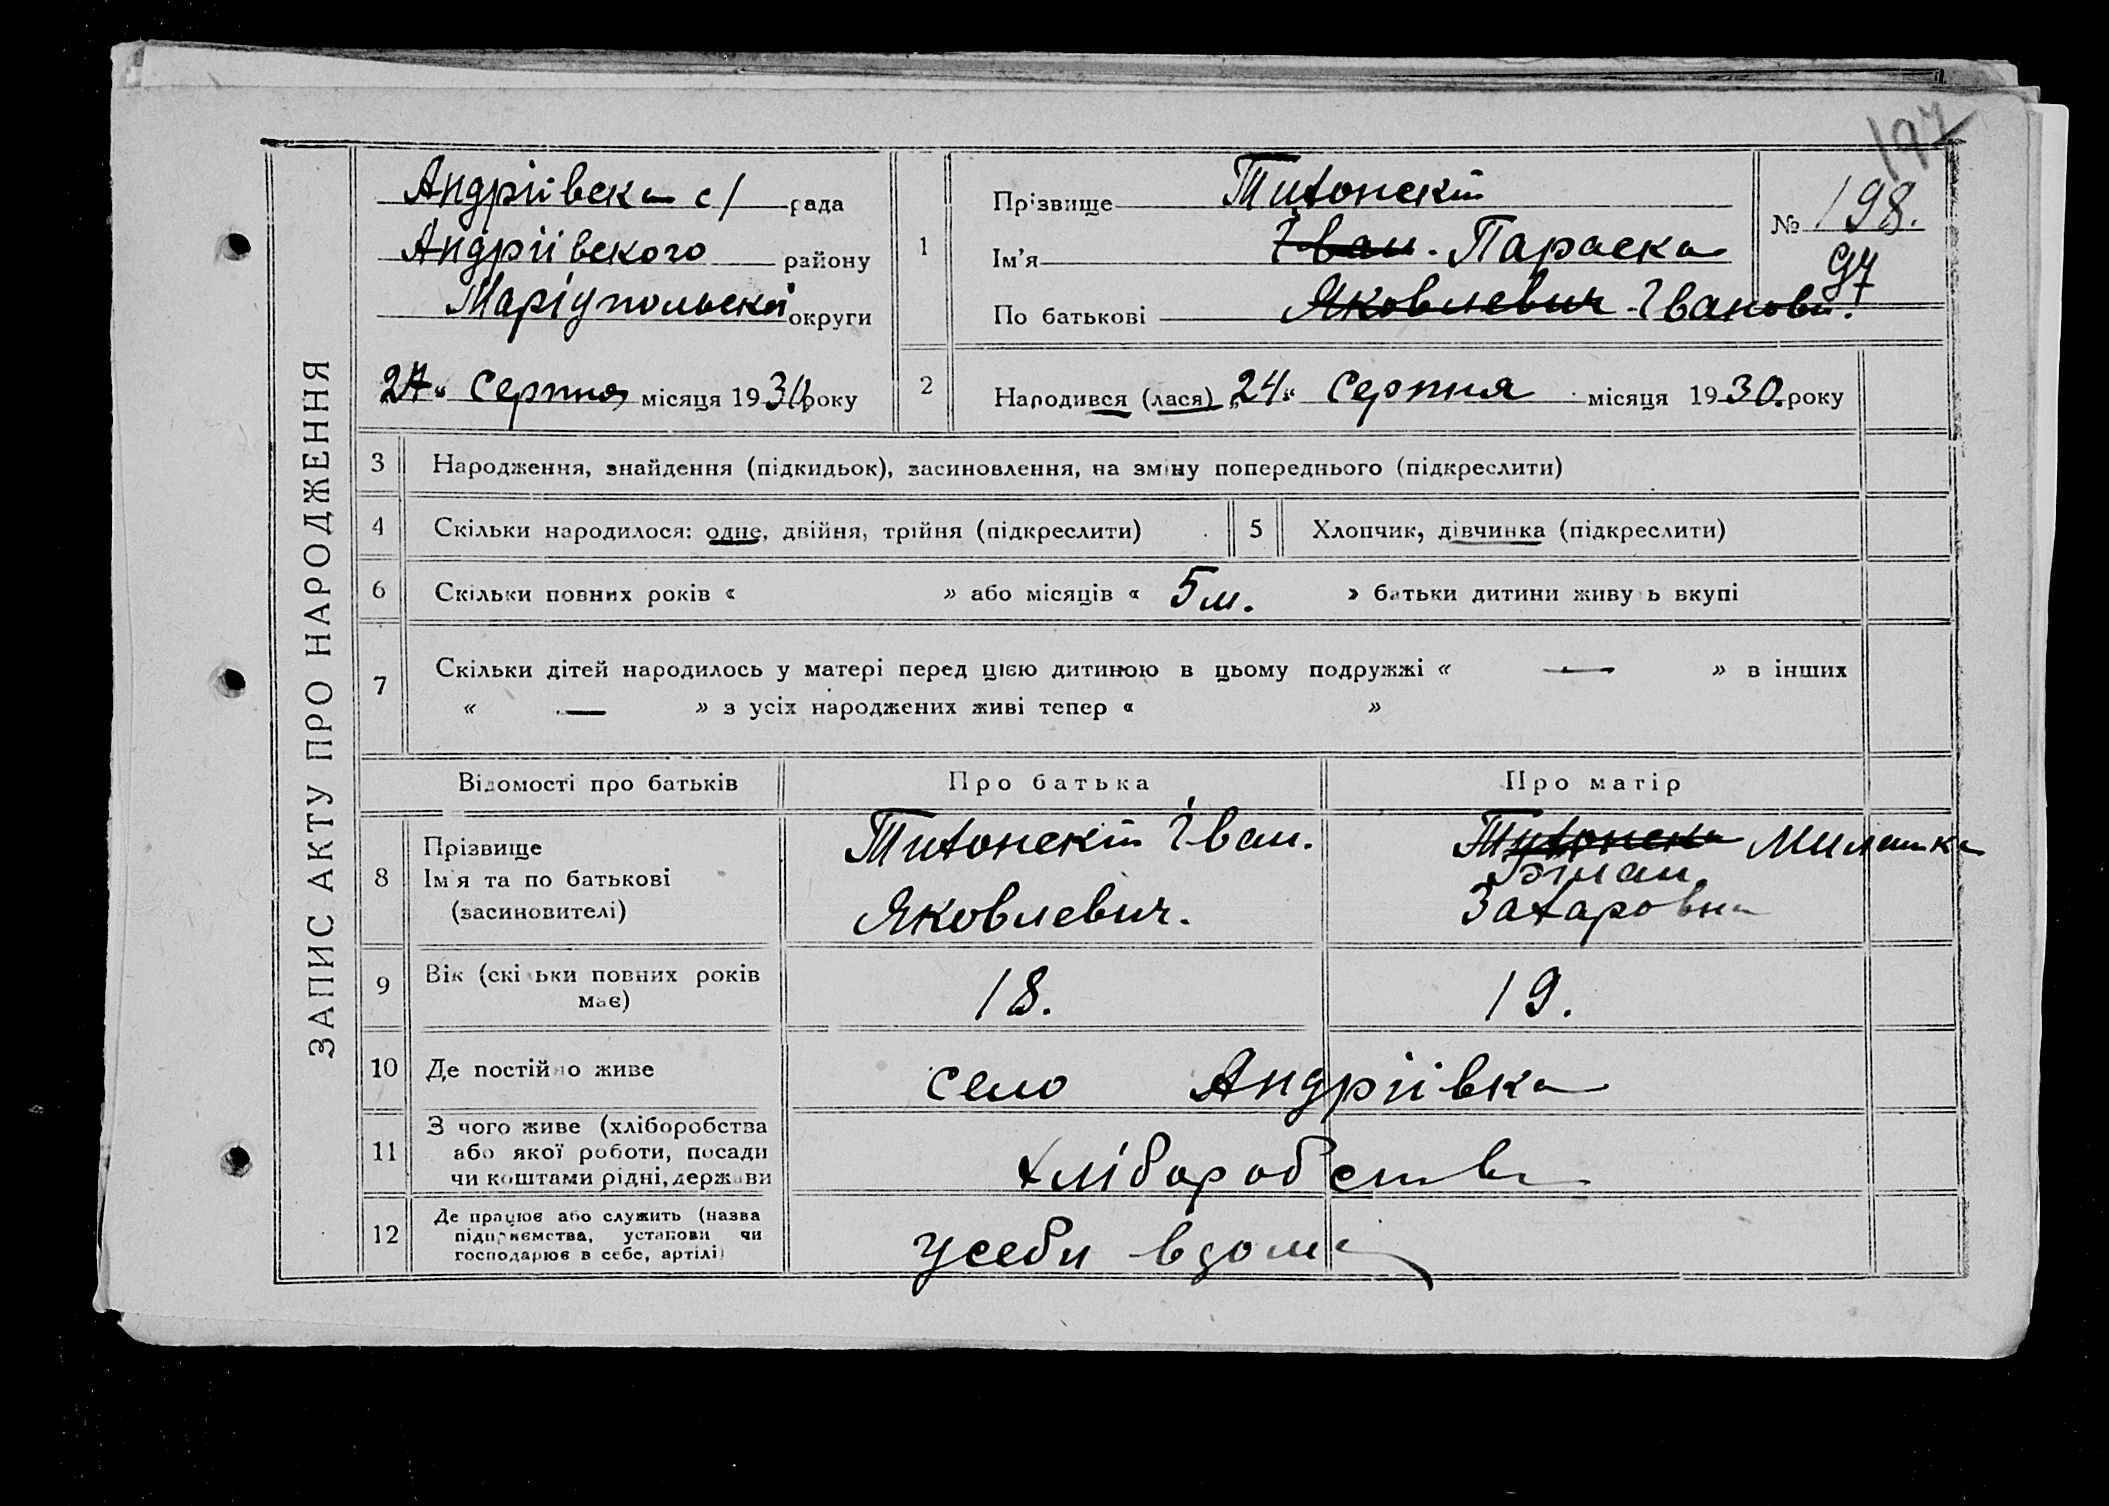 197
ЗАПИС АКТУ ПРО НАРОДЖЕННЯ
Андріївська с/ рада
Андріївского району
Маріупольскої округи
27 „ Серпня місяця 1930 року
1
Прізвище Титонскій
Ім'я Іван. Параска
По батькові Яковлевич Іванови.
№ 198.
97
2
Народився (лася) „ 24 “ Серпня місяця 1930. року
3 Народження, знайдення (підкидьок), засиновлення, на зміну попереднього (підкреслити)
4 Скільки народилося: одне, двійня, трійня (підкреслити)
5 Хлопчик, дівчинка (підкреслити)
6 Скільки повних років « » або місяців « 5 м. » батьки дитини живуть вкупі
7 Скільки дітей народилось у матері перед цією дитиною в цьому подружжі « — » в інших
« — » з усіх народжених живі тепер « »
Відомості про батьків Про батька Про матір
8 Прізвище
Ім'я та по батькові
(засиновителі)
Титонскій Іван.
Яковлевич.
Милашка
Захаровна
9 Вік (скільки повних років
має)
18. 19.
10 Де постійно живе село Андріївка
11 З чого живе (хліборобства
або якої роботи, посади
чи коштами рідні, держави
хліборобства
12 Де працює або служить (назва
підприємства, установи чи
господарює в себе, артілі)
усеби вдома